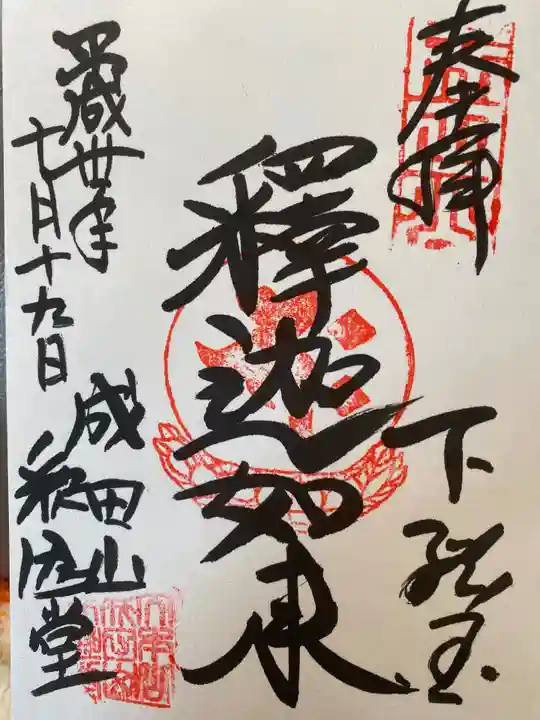 奉拝
下総国
釋迦如来
平成丗年
七月十九日
成田山
釈迦堂